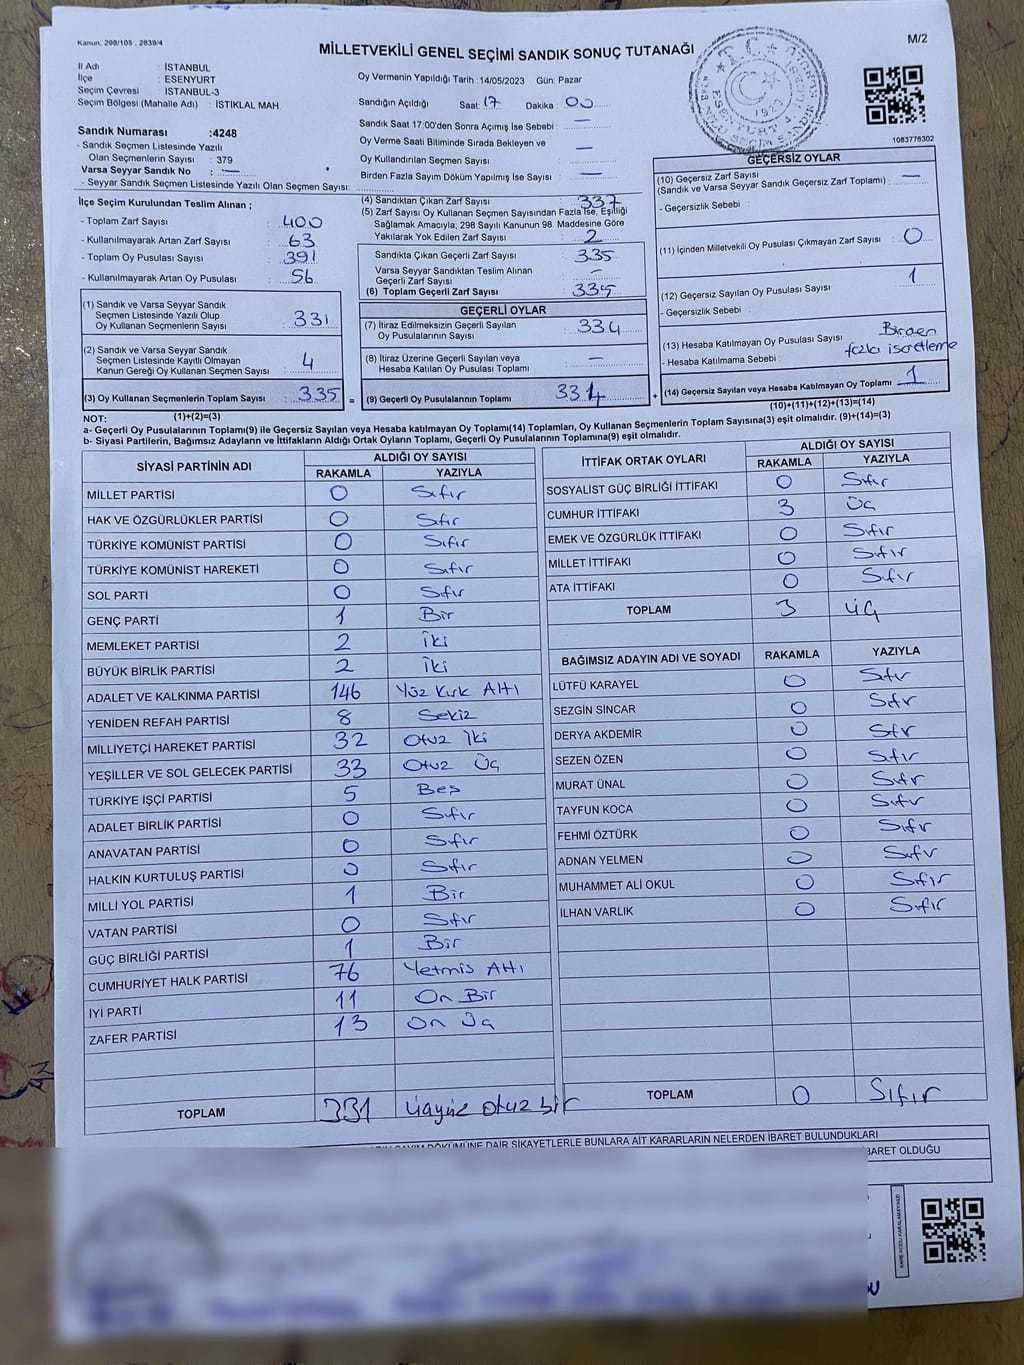 Kanun: 298/105 , 2839/4
MİLLETVEKİLİ GENEL SEÇİMİ SANDIK SONUÇ TUTANAĞI
M/2
İl Adı : İSTANBUL
İlçe : ESENYURT
Seçim Çevresi : İSTANBUL-3
Seçim Bölgesi (Mahalle Adı) : İSTİKLAL MAH.
Oy Vermenin Yapıldığı Tarih :14/05/2023 Gün: Pazar
Sandığın Açıldığı Saat: 17 Dakika : 00
Sandık Saat 17:00'den Sonra Açımış İse Sebebi : —
Oy Verme Saati Bitiminde Sırada Bekleyen ve
Oy Kullandırılan Seçmen Sayısı : —
Birden Fazla Sayım Döküm Yapılmış İse Sayısı : —
1083776302
Sandık Numarası :4248
- Sandık Seçmen Listesinde Yazılı
Olan Seçmenlerin Sayısı : 379
Varsa Seyyar Sandık No : —
- Seyyar Sandık Seçmen Listesinde Yazılı Olan Seçmen Sayısı:
İlçe Seçim Kurulundan Teslim Alınan ;
- Toplam Zarf Sayısı : 400
- Kullanılmayarak Artan Zarf Sayısı : 63
- Toplam Oy Pusulası Sayısı : 391
- Kullanılmayarak Artan Oy Pusulası : 56
(1) Sandık ve Varsa Seyyar Sandık
Seçmen Listesinde Yazılı Olup
Oy Kullanan Seçmenlerin Sayısı : 331
(2) Sandık ve Varsa Seyyar Sandık
Seçmen Listesinde Kayıtlı Olmayan
Kanun Gereği Oy Kullanan Seçmen Sayısı : 4
(3) Oy Kullanan Seçmenlerin Toplam Sayısı : 335 =
(1)+(2)=(3)
(4) Sandıktan Çıkan Zarf Sayısı : 337
(5) Zarf Sayısı Oy Kullanan Seçmen Sayısından Fazla İse, Eşitliği
Sağlamak Amacıyla; 298 Sayılı Kanunun 98. Maddesine Göre
Yakılarak Yok Edilen Zarf Sayısı : 2
Sandıkta Çıkan Geçerli Zarf Sayısı : 335
Varsa Seyyar Sandıktan Teslim Alınan
Geçerli Zarf Sayısı : —
(6) Toplam Geçerli Zarf Sayısı : 335
GEÇERLİ OYLAR
(7) İtiraz Edilmeksizin Geçerli Sayılan
Oy Pusulalarının Sayısı : 334
(8) İtiraz Üzerine Geçerli Sayılan veya
Hesaba Katılan Oy Pusulası Toplamı : —
(9) Geçerli Oy Pusulalarının Toplamı : 334 +
GEÇERSİZ OYLAR
(10) Geçersiz Zarf Sayısı
(Sandık ve Varsa Seyyar Sandık Geçersiz Zarf Toplamı) : —
- Geçersizlik Sebebi :
(11) İçinden Milletvekili Oy Pusulası Çıkmayan Zarf Sayısı : 0
(12) Geçersiz Sayılan Oy Pusulası Sayısı : 1
- Geçersizlik Sebebi :
(13) Hesaba Katılmayan Oy Pusulası Sayısı :
- Hesaba Katılmama Sebebi : Birden fazla isaretleme
(14) Geçersiz Sayılan veya Hesaba Katılmayan Oy Toplamı : 1
(10)+(11)+(12)+(13)=(14)
NOT:
a- Geçerli Oy Pusulalarının Toplamı(9) ile Geçersiz Sayılan veya Hesaba Katılmayan Oy Toplamı(14) Toplamları, Oy Kullanan Seçmenlerin Toplam Sayısına(3) eşit olmalıdır. (9)+(14)=(3)
b- Siyasi Partilerin, Bağımsız Adayların ve İttifakların Aldığı Ortak Oyların Toplamı, Geçerli Oy Pusulalarının Toplamına(9) eşit olmalıdır.
SİYASİ PARTİNİN ADI ALDIĞI OY SAYISI
RAKAMLA YAZIYLA
MİLLET PARTİSİ 0 Sıfır
HAK VE ÖZGÜRLÜKLER PARTİSİ 0 Sıfır
TÜRKİYE KOMÜNİST PARTİSİ 0 Sıfır
TÜRKİYE KOMÜNİST HAREKETİ 0 Sıfır
SOL PARTİ 0 Sıfır
GENÇ PARTİ 1 Bir
MEMLEKET PARTİSİ 2 İki
BÜYÜK BİRLİK PARTİSİ 2 İki
ADALET VE KALKINMA PARTİSİ 146 Yüz Kırk Altı
YENİDEN REFAH PARTİSİ 8 Sekiz
MİLLİYETÇİ HAREKET PARTİSİ 32 Otuz İki
YEŞİLLER VE SOL GELECEK PARTİSİ 33 Otuz Üç
TÜRKİYE İŞÇİ PARTİSİ 5 Beş
ADALET BİRLİK PARTİSİ 0 Sıfır
ANAVATAN PARTİSİ 0 Sıfır
HALKIN KURTULUŞ PARTİSİ 0 Sıfır
MİLLİ YOL PARTİSİ 1 Bir
VATAN PARTİSİ 0 Sıfır
GÜÇ BİRLİĞİ PARTİSİ 1 Bir
CUMHURİYET HALK PARTİSİ 76 Yetmis Altı
İYİ PARTİ 11 On Bir
ZAFER PARTİSİ 13 On Üç
TOPLAM 331 üçyüz otuz bir
İTTİFAK ORTAK OYLARI ALDIĞI OY SAYISI
RAKAMLA YAZIYLA
SOSYALİST GÜÇ BİRLİĞİ İTTİFAKI 0 Sıfır
CUMHUR İTTİFAKI 3 Üç
EMEK VE ÖZGÜRLÜK İTTİFAKI 0 Sıfır
MİLLET İTTİFAKI 0 Sıfır
ATA İTTİFAKI 0 Sıfır
TOPLAM 3 üç
BAĞIMSIZ ADAYIN ADI VE SOYADI RAKAMLA YAZIYLA
LÜTFÜ KARAYEL 0 Sıfır
SEZGİN SİNCAR 0 Sıfır
DERYA AKDEMİR 0 Sıfır
SEZEN ÖZEN 0 Sıfır
MURAT ÜNAL 0 Sıfır
TAYFUN KOCA 0 Sıfır
FEHMİ ÖZTÜRK 0 Sıfır
ADNAN YELMEN 0 Sıfır
MUHAMMET ALİ OKUL 0 Sıfır
İLHAN VARLIK 0 Sıfır
TOPLAM 0 Sıfır
SAYIM DÖKÜMÜNE DAİR ŞİKAYETLERLE BUNLARA AİT KARARLARIN NELERDEN İBARET BULUNDUKLARI
BARET OLDUĞU
KARE KODU KARALAMAYINIZ!